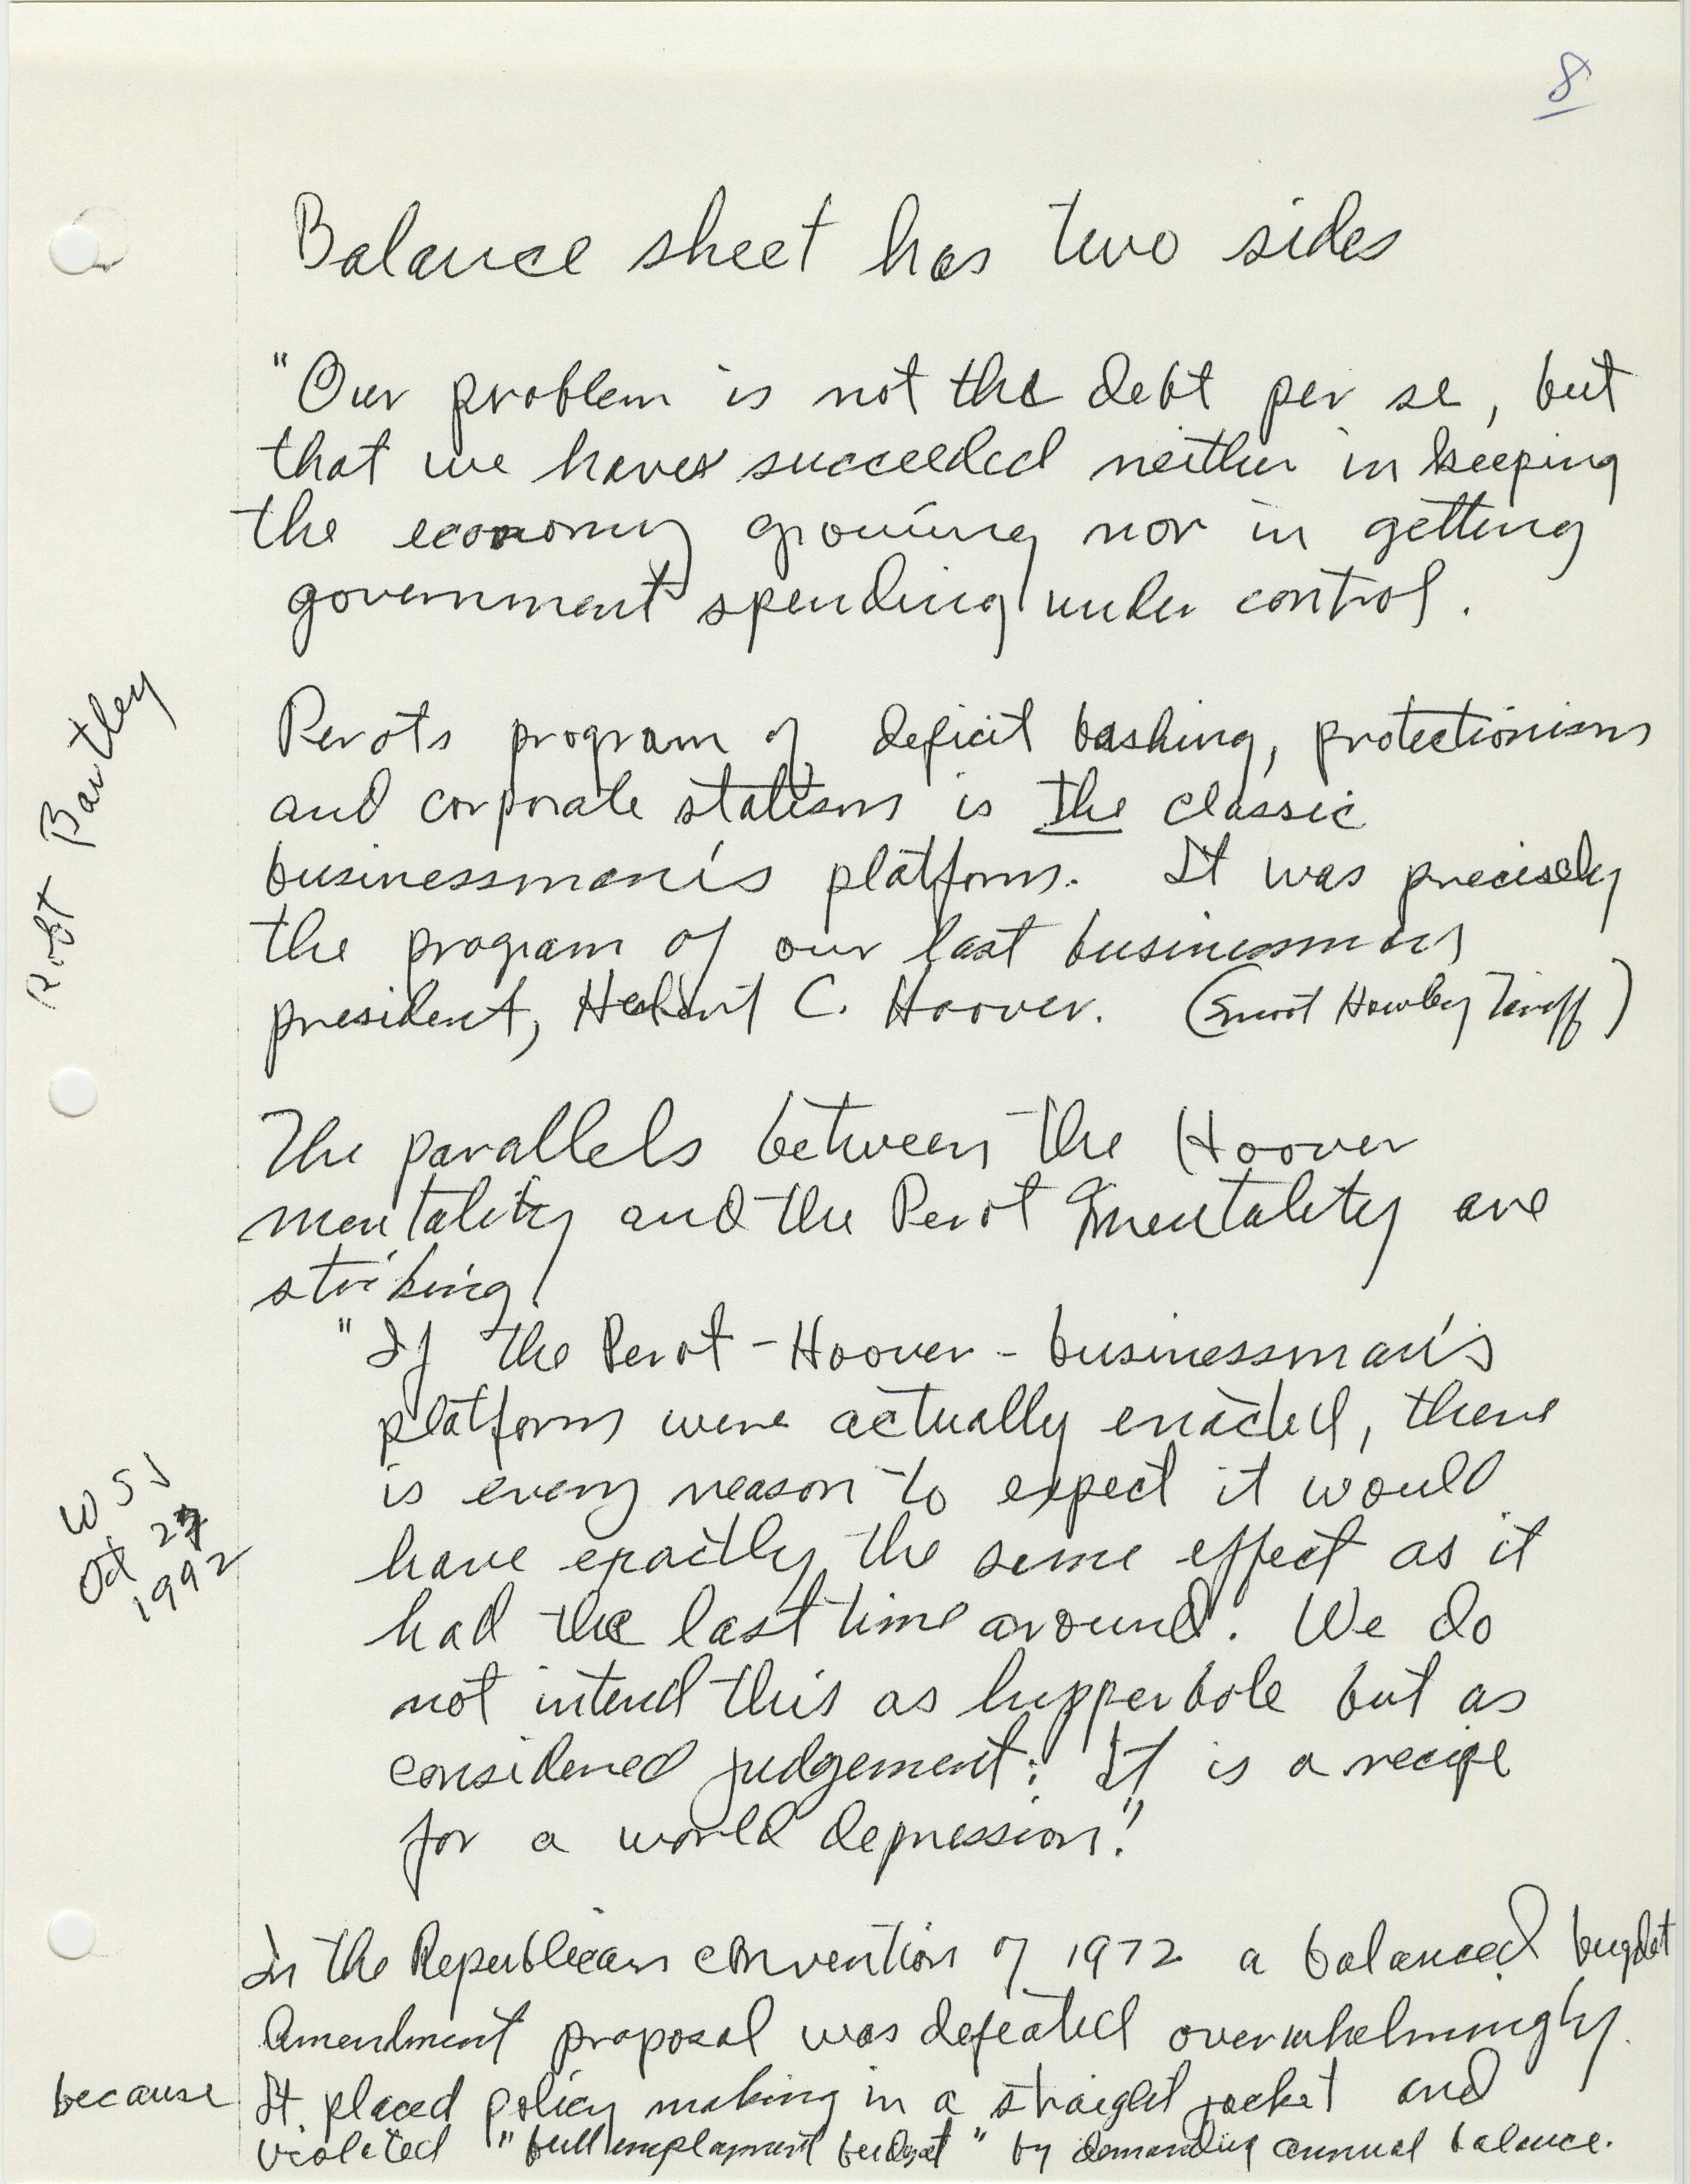 8
Balance sheet has two sides
"Our problem is not the debt per se, but
that we have succeeded neither in keeping
the economy growing nor in getting
government spending under control.
Robt Bartley
Perots program of deficit bashing, protectionism
and corporate statism is the classic
businessman's platform. It was precisely
the program of our last businessman
president, Herbert C. Hoover. (Smoot Hawley Tariff)
The parallels between the Hoover
mentality and the Perot mentality are
striking!
"If the Perot - Hoover - businessman's
platform were actually enacted, there
is every reason to expect it would
WSJ
Oct 27
1992
have exactly the same effect as it
had the last time around. We do
not intend this as hypperbole but as
considered judgement: It is a recipe
for a world depression."
In the Republican convention of 1972 a balanced bugdet
Amendment proposal was defeated overwhelmingly.
because It placed policy making in a straight jacket and
violated "full employment budget" by demanding annual balance.